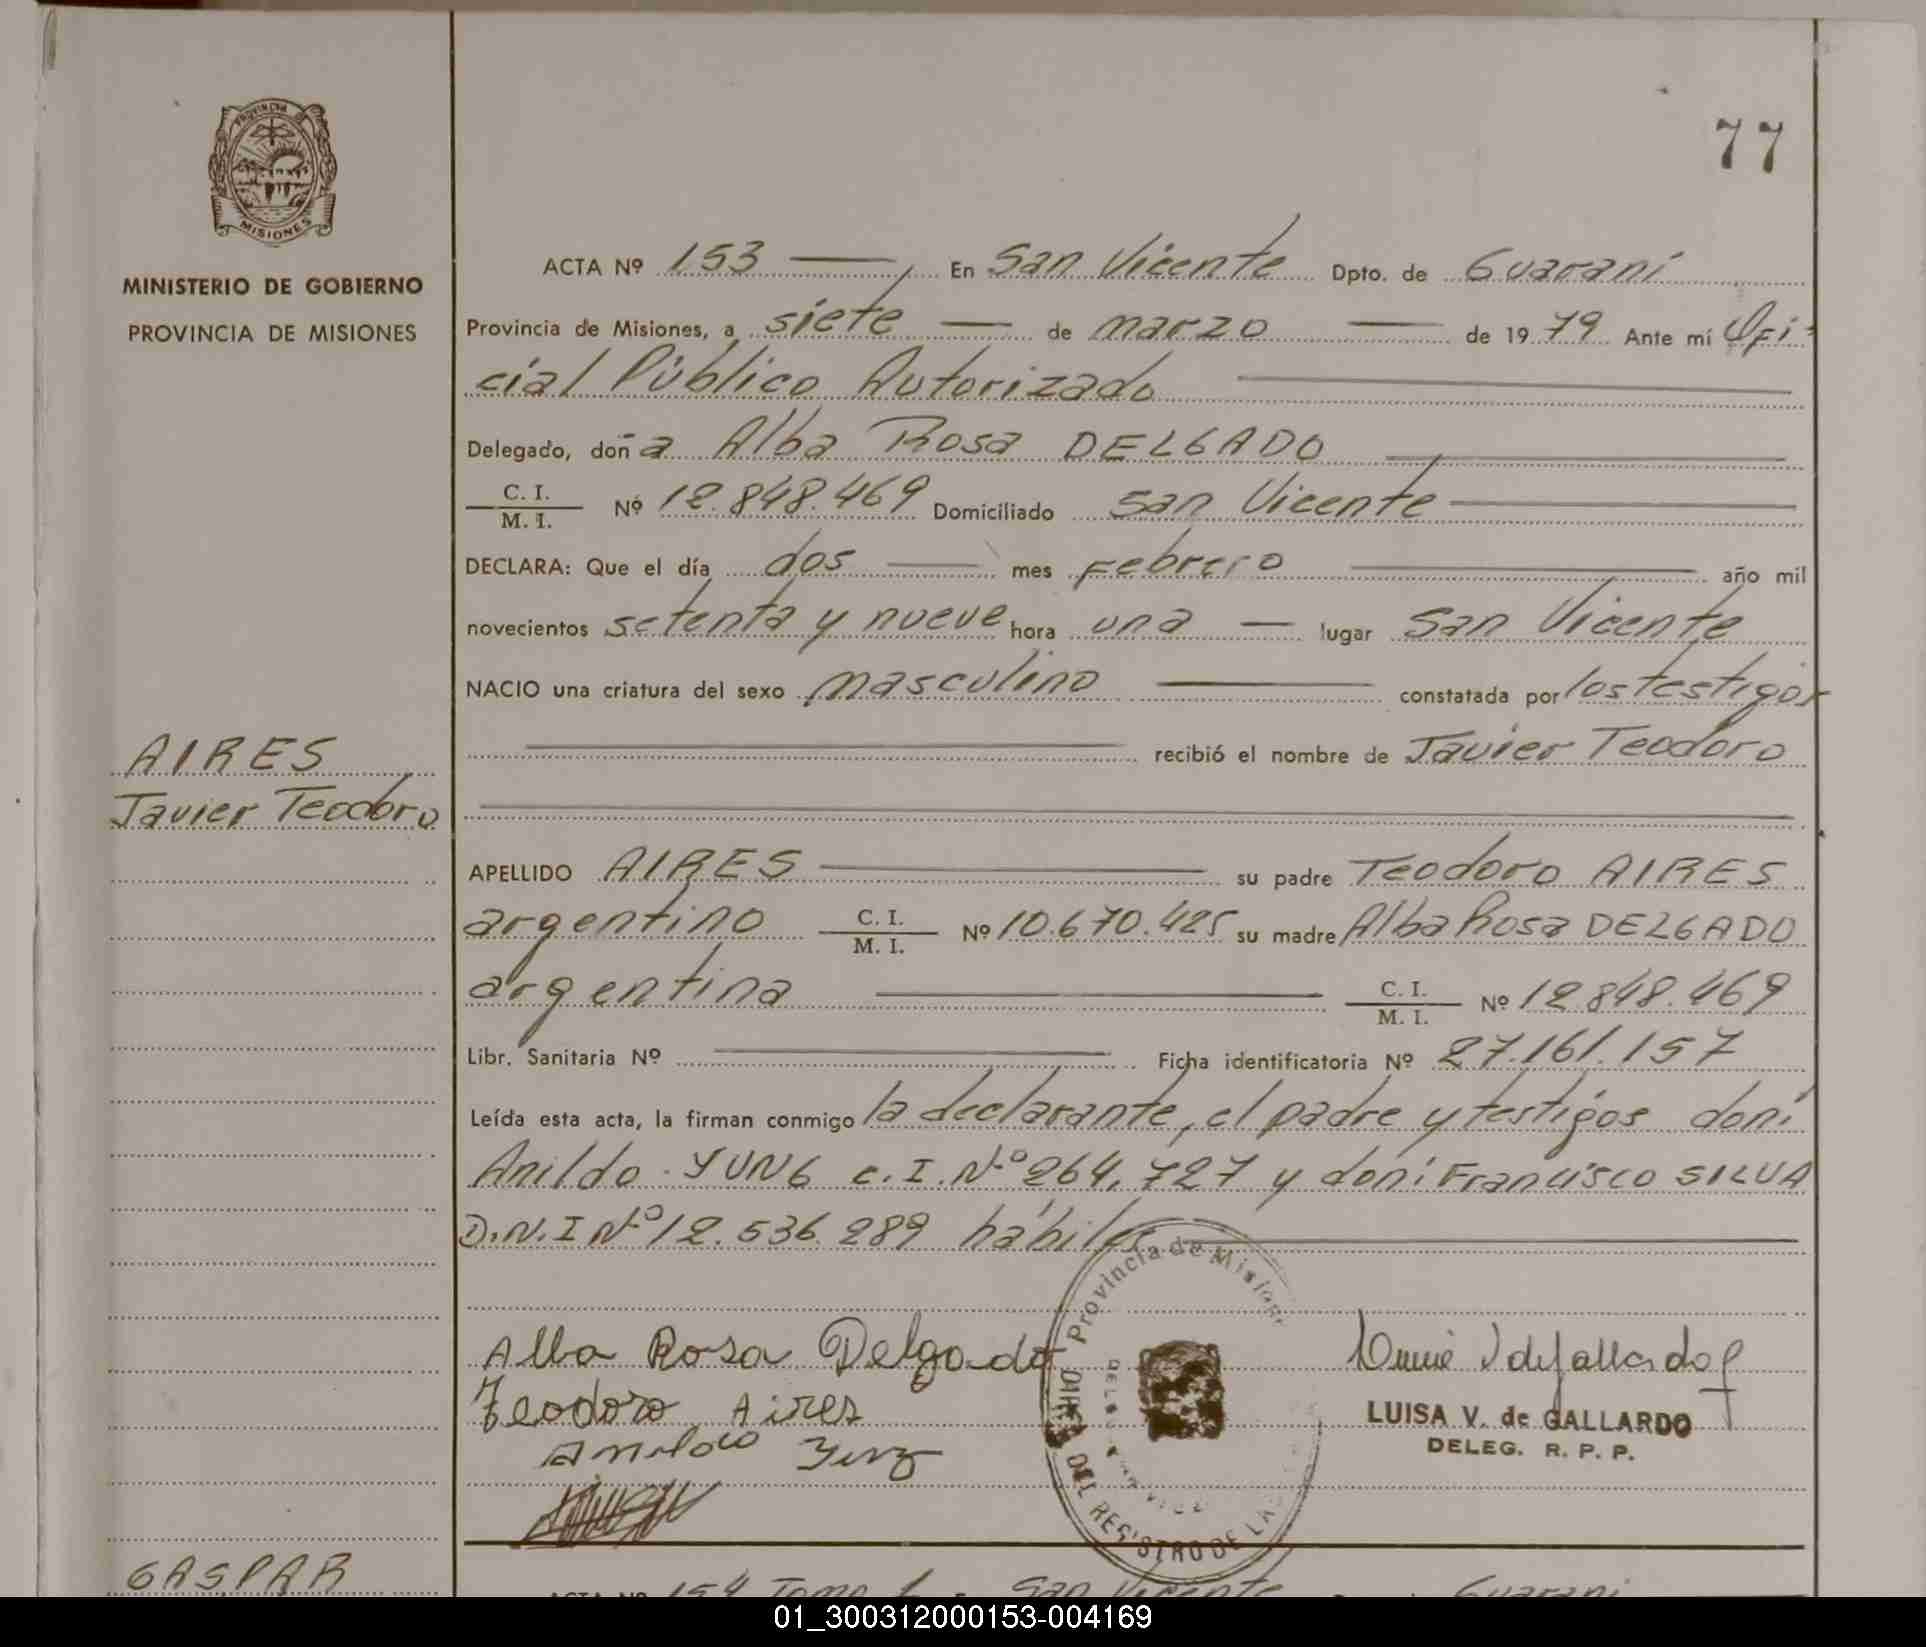 77
PROVINCIA DE
MISIONES
MINISTERIO DE GOBIERNO
PROVINCIA DE MISIONES
ACTA Nº 153 — En San Vicente Dpto. de Guaraní
Provincia de Misiones, a siete — de marzo — de 1979 Ante mí Ofi-
cial Público Autorizado —
Delegado, doña Alba Rosa DELGADO —
C. I.
M. I. Nº 12.848.469 Domiciliado San Vicente —
DECLARA: Que el día dos — mes Febrero — año mil
novecientos setenta y nueve hora una — lugar San Vicente
NACIO una criatura del sexo masculino — constatada por los testigos
— recibió el nombre de Javier Teodoro
AIRES
Javier Teodoro
APELLIDO AIRES — su padre Teodoro AIRES
argentino C. I.
M. I. Nº 10.670.425 su madre Alba Rosa DELGADO
argentina — C. I.
M. I. Nº 12.848.469
Libr. Sanitaria Nº — Ficha identificatoria Nº 27.161.157
Leída esta acta, la firman conmigo la declarante, el padre y testigos don:
Anildo YUNG c.I.Nº 264.727 y don: Francisco SILVA
D.N.I Nº 12.536.289 hábiles —
Alba Rosa Delgado
Teodoro Aires
Provincia de Misiones
DEL REGISTRO DE LAS
LUISA V. de GALLARDO
DELEG. R. P. P.
GASPAR
ACTA Nº 154 Tomo 1 En San Vicente Guaraní
01_300312000153-004169